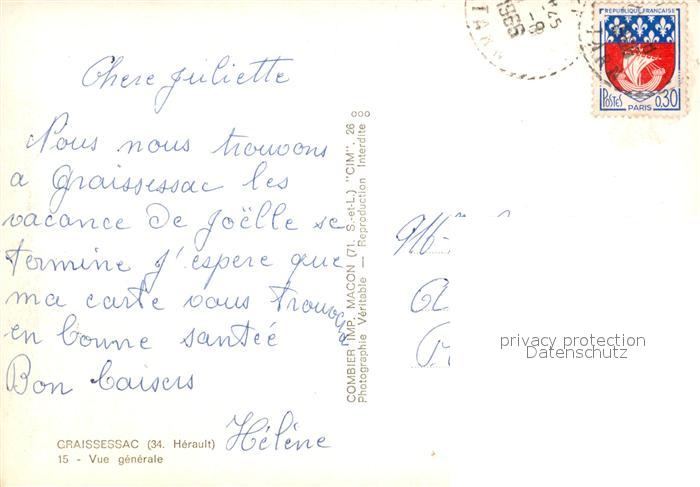 Chere Juliette
Nous nous trouvons
a Graissessac les
vacance de Joëlle se
termine j'espere que
ma carte vous trouvera
en bonne santée
Bon baisers
Hélène
GRAISSESSAC (34. Hérault)
15 - Vue générale
COMBIER IMP. MACON (71. S.-et-L.) "CIM". 26 ooo
Photographie Véritable — Reproduction Interdite
1966
TARN
REPUBLIQUE FRANÇAISE
POSTES
PARIS
0,30
privacy protection
Datenschutz